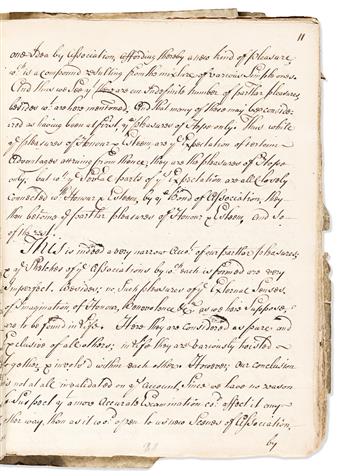 11
one Idea by Association, affording thereby a new kind of pleasure
wch is a compound resulting from the mixture of various simple ones.
And thus we see yt there are an Indefinite number of partlar pleasures,
besides wt are here mentioned. And that many of these may be consider
ered as having been at first ye pleasures of Hope only. Thus while
ye pleasures of Honour & Esteem, are ye Expectation of certain
advantages accruing from thence, they are the pleasures of Hope
only; but wn ye several parts of ys Expectation are all closely
Connected wth Honour & Esteem, by ye Bond of Association, they
then become ye partlar pleasures of Honour & Esteem, and so
of the rest.
This is indeed a very narrow Acct. of our partlar pleasures;
& ye Sketches of ye Associations by wch each is formed are very
Imperfect. Besides, no such pleasures of ye External Senses,
of Imagination, of Honour, Benevolence &c. as we here Suppose,
are to be found in Life. Here they are considered as pure and
Exclusive of all others; in Life they are variously twisted
together & involv'd within each other. However, our Conclusion
is not at all invalidated on ys Account, Since we have no reason
to Suspect yt a more Accurate Examination cod. affect it any
other way, than as it wod. open to us new Scenes of Association,
by